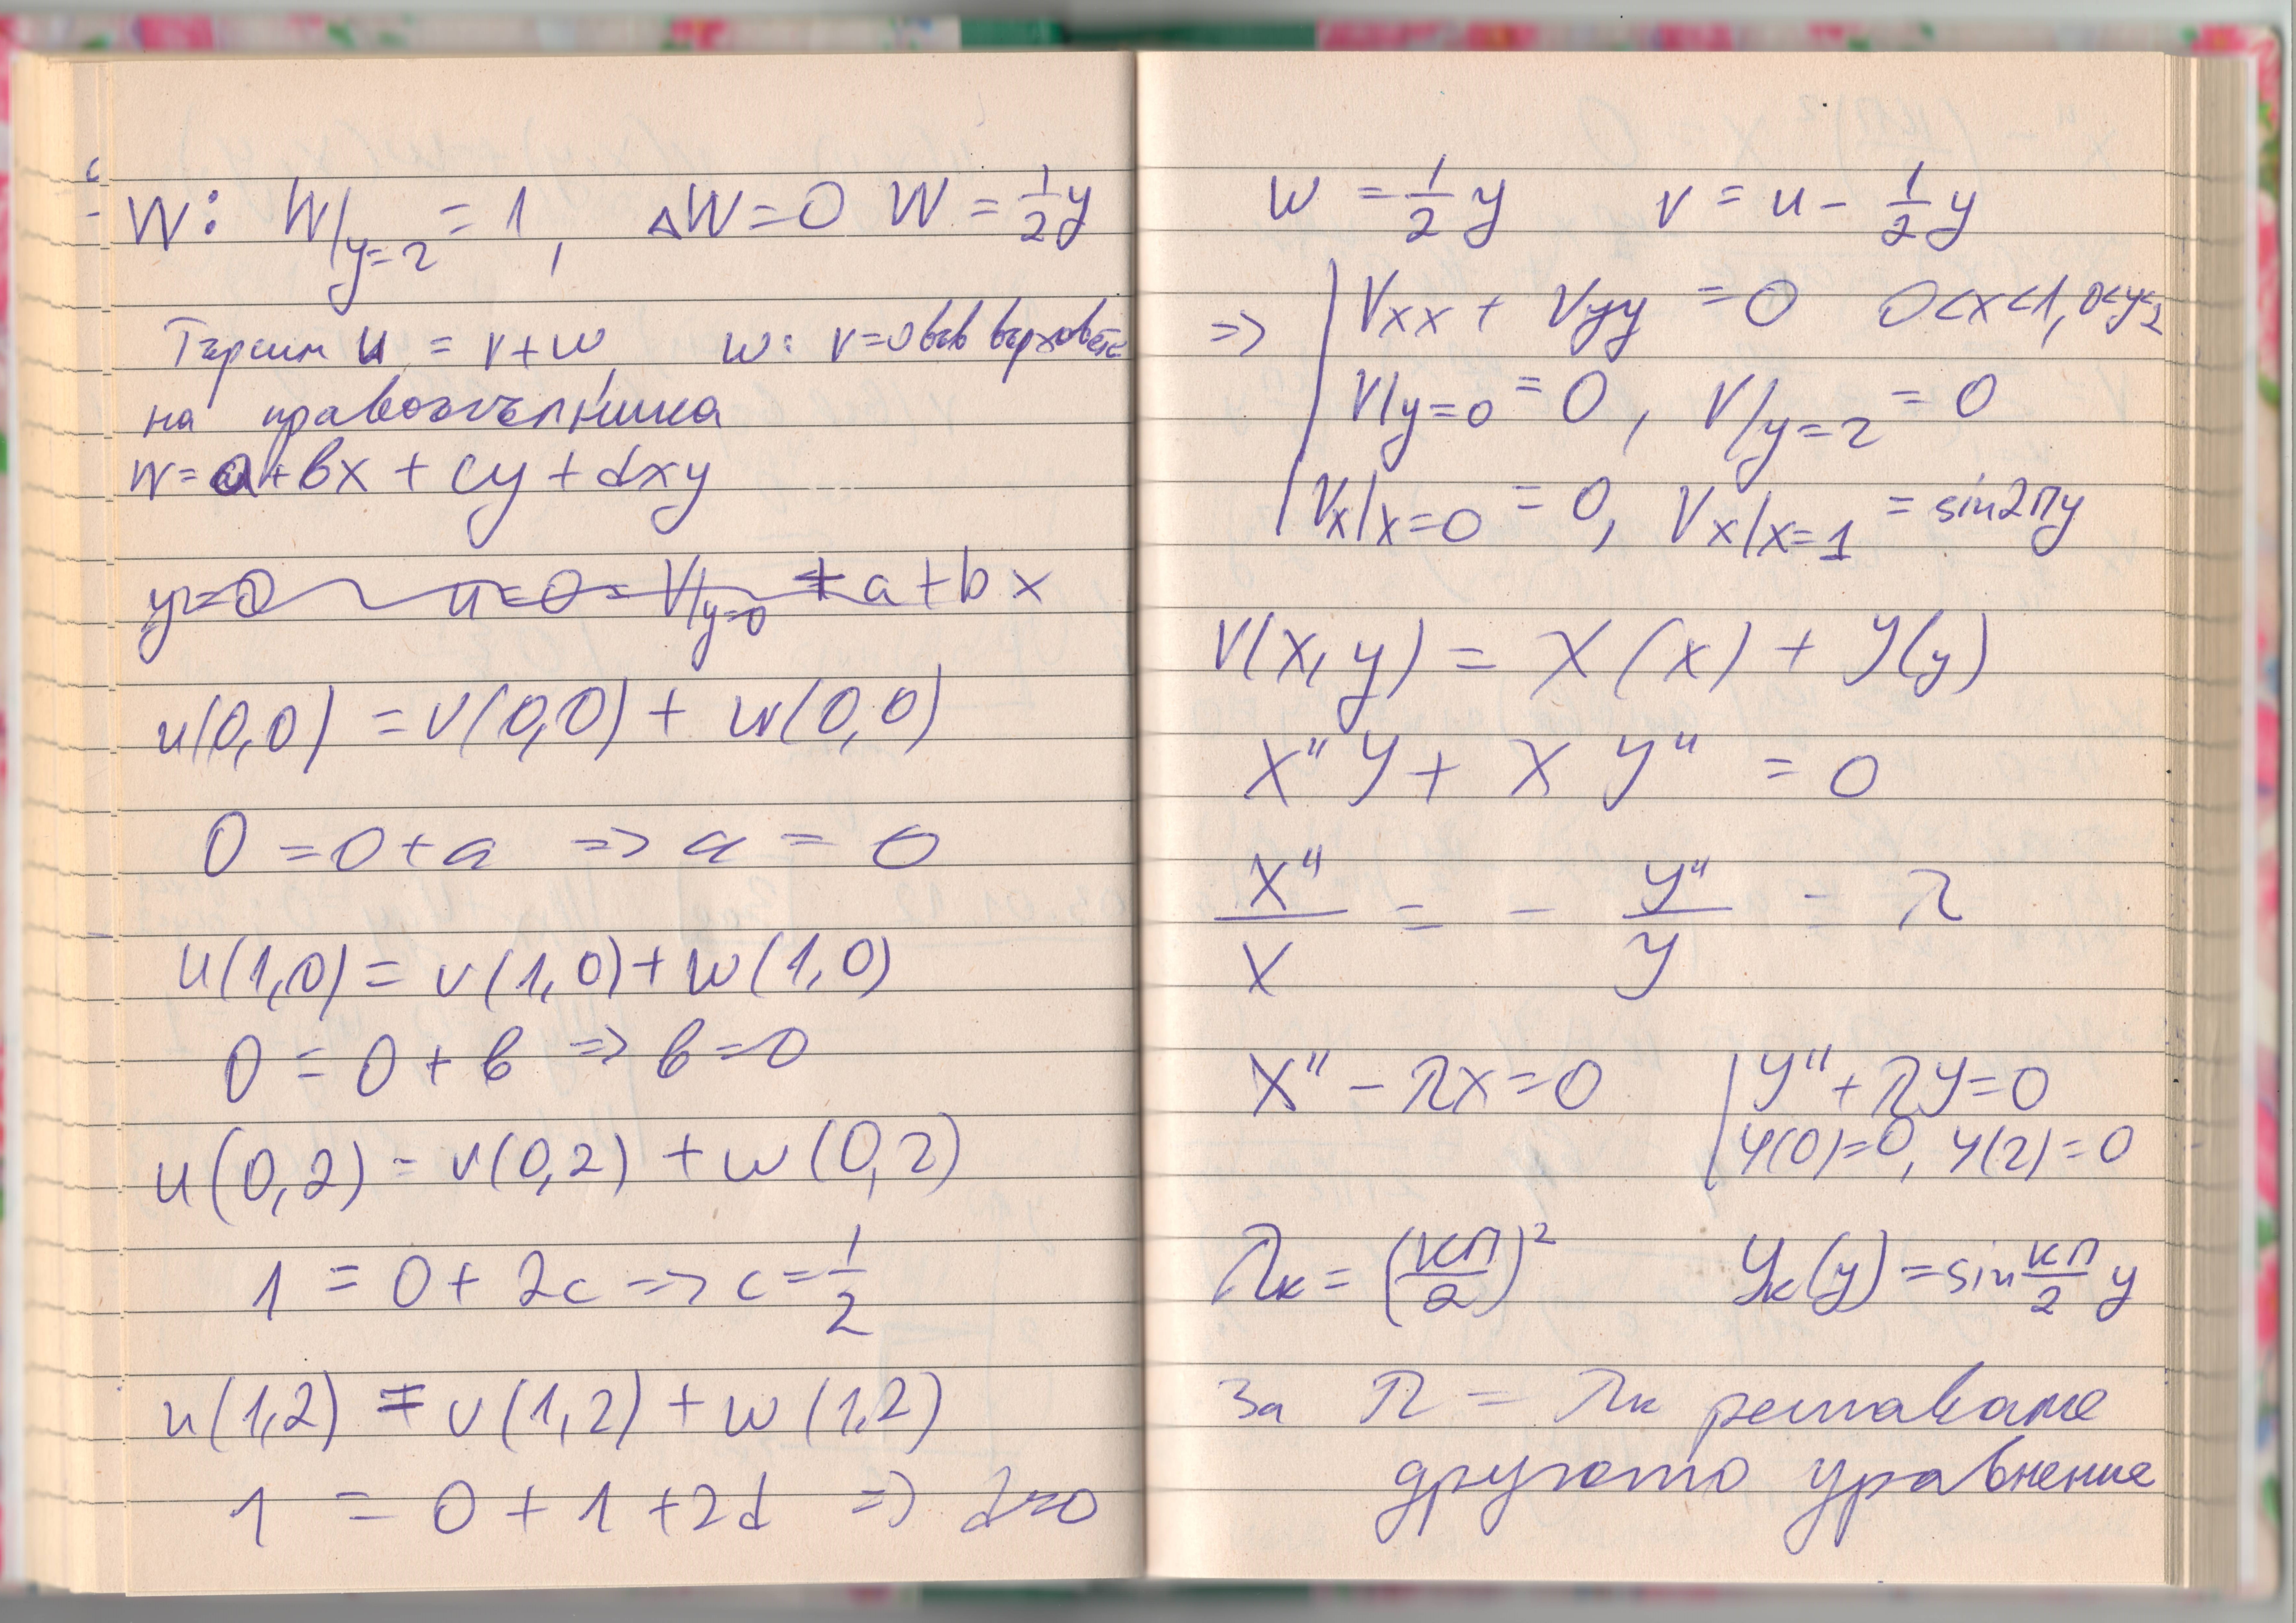 W: W|y=2 = 1, ΔW=0 W = 1/2 y
Търсим u = v+w, w: v=0 във върховете
на правоъгълника
w=a+bx + cy + dxy
y=0 u=0= V|y=0 + a+bx
u(0,0) = v(0,0) + w(0,0)
0 = 0+a => a = 0
u(1,0) = v(1,0)+w(1,0)
0 = 0 + b => b=0
u(0,2) = v(0,2) + w(0,2)
1 = 0 + 2c => c = 1/2
u(1,2) = v(1,2) + w(1,2)
1 = 0 + 1 + 2d => d=0
w = 1/2 y v = u - 1/2 y
=> | Vxx + Vyy = 0 0<x<1, 0<y<2
V|y=0 = 0, V|y=2 = 0
Vx|x=0 = 0, Vx|x=1 = sin2πy
V(x,y) = X(x) + Y(y)
X"Y + X Y" = 0
X"/X = - Y"/Y = λ
X" - λx=0 | Y" + λY=0
Y(0)=0, Y(2)=0
λk = (kπ/2)² Yk(y) = sin kπ/2 y
За λ = λk решаваме
другото уравнение